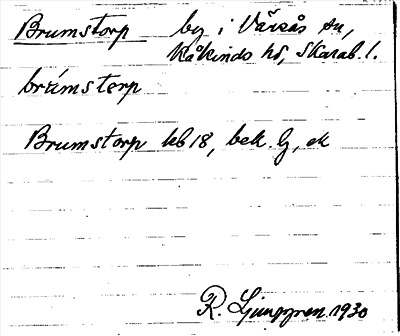 Brumstorp by i Värsås sn,
Kåkinds hd, Skarab. l.
brúmstərp
Brumstorp kb 18, bek. G, ek
R. Ljunggren 1930